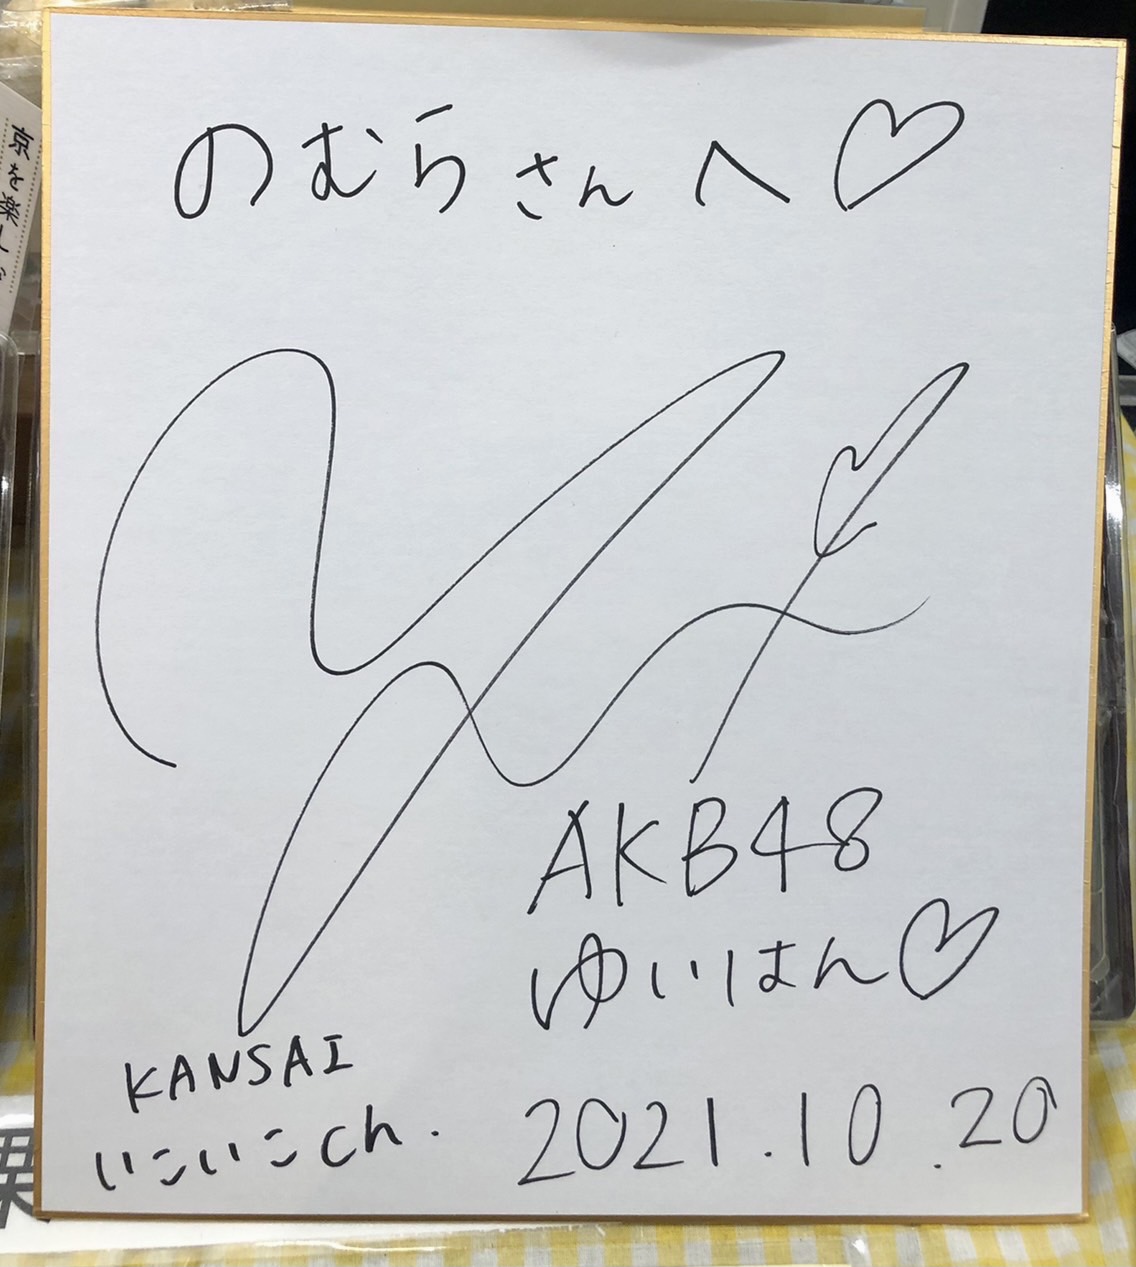 のむらさんへ♡
AKB48
ゆいはん♡
KANSAI
いこいこch.
2021.10.20
京を楽し